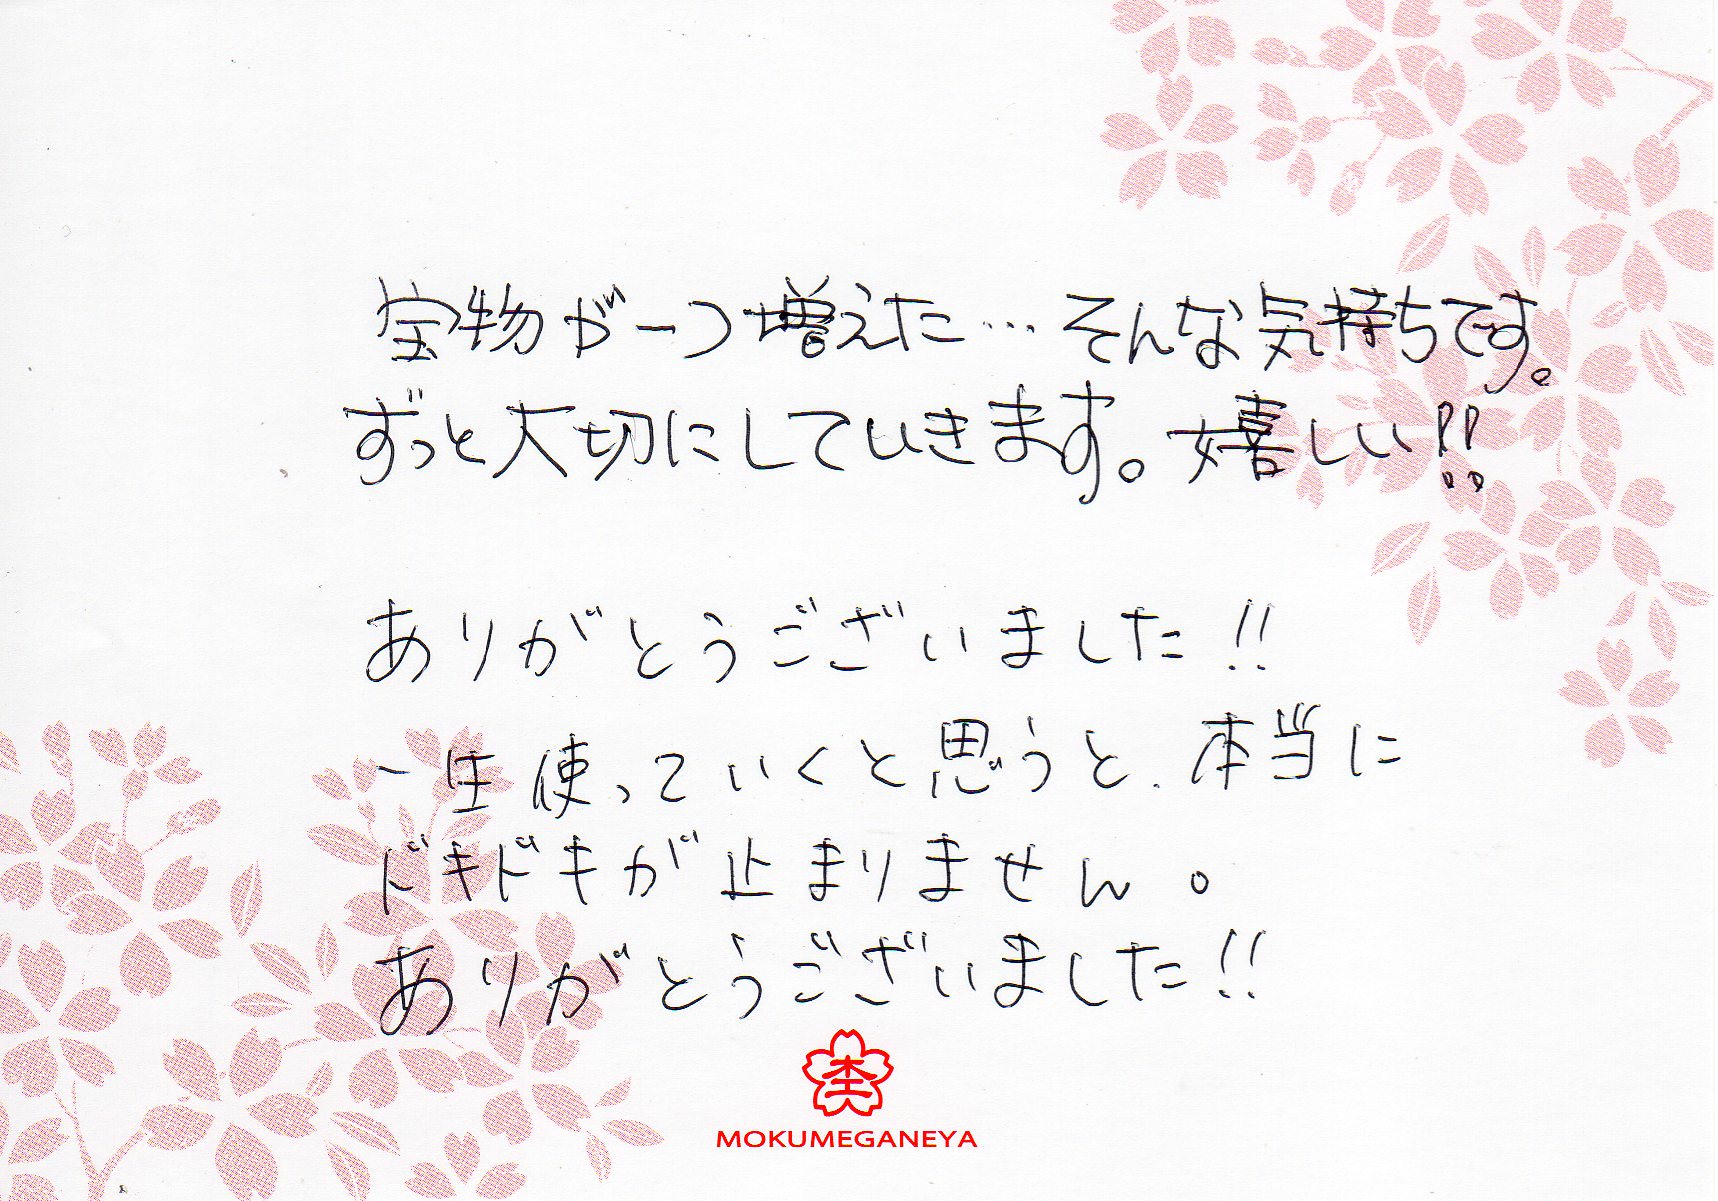 宝物が一つ増えた…そんな気持ちです。
ずっと大切にしていきます。嬉しい!!
ありがとうございました!!
一生使っていくと思うと、本当に
ドキドキが止まりません。
ありがとうございました!!
杢
MOKUMEGANEYA